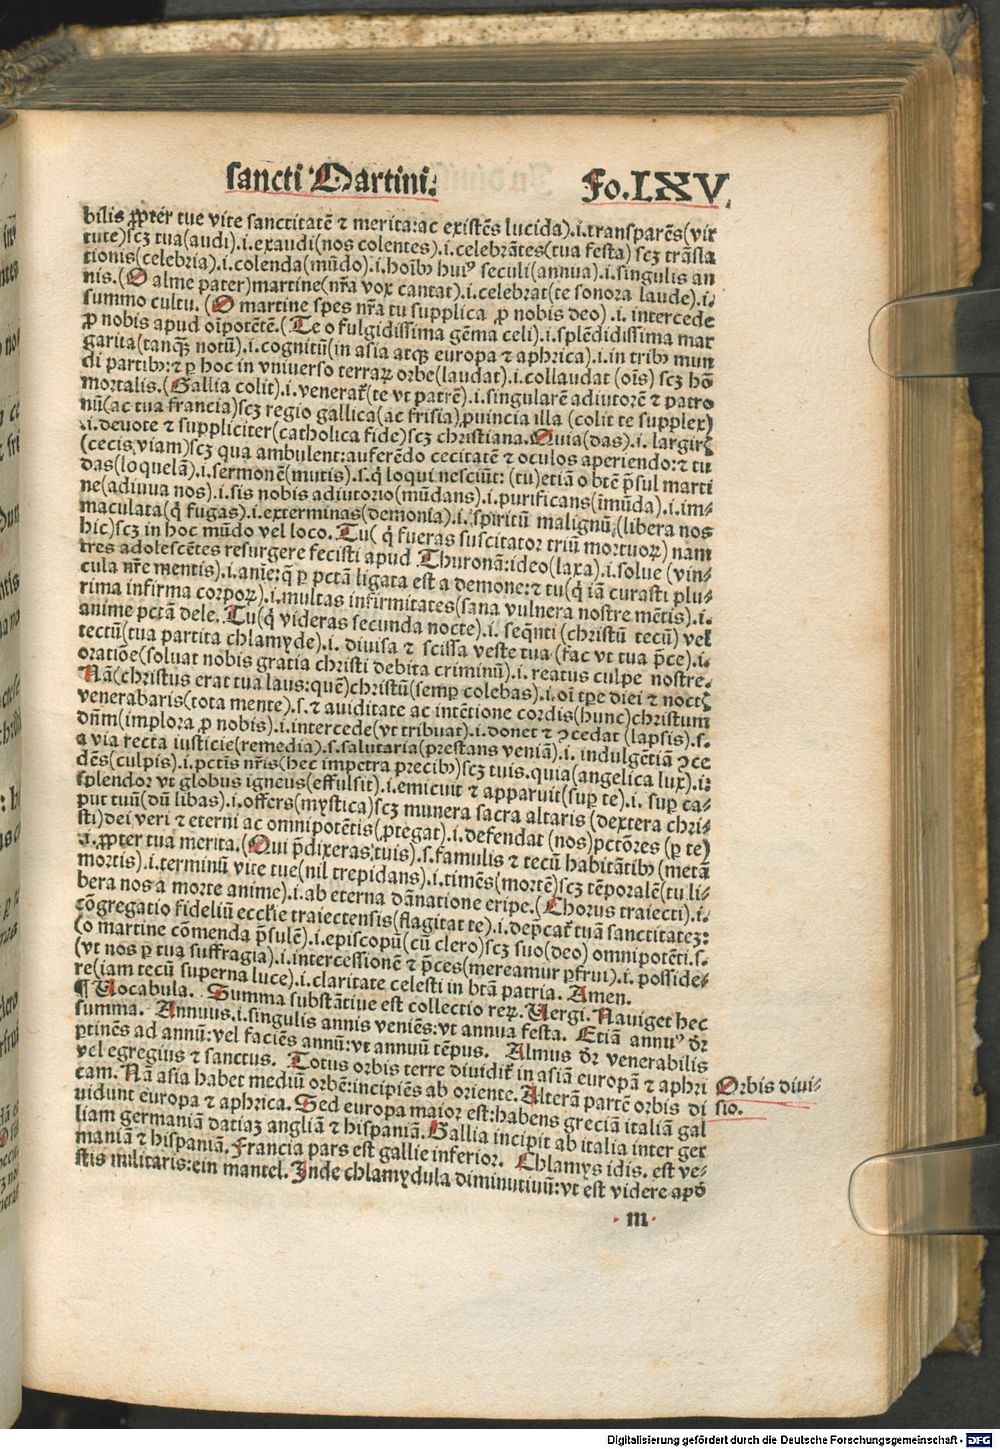 sancti Martini. Fo.LXV.
bilis ꝓpter tue vite sanctitatē ⁊ merita:ac existēs lucida).i.transparēs(vir
tute)scꝫ tua(audi).i.exaudi(nos colentes).i.celebrātes(tua festa) scꝫ trāsla
tionis(celebria).i.colenda(mūdo).i.hoībꝰ huiꝰ seculi(annua).i.singulis an
nis.(O alme pater)martine(nr̄a vox cantat).i.celebrat(te sonora laude).i.
summo cultu. (O martine spes nr̄a tu supplica ꝓ nobis deo) .i. intercede
ꝓ nobis apud oīpotētē.(Te o fulgidissima gēma celi).i.splēdidissima mar
garita(tanqꝫ notū).i.cognitū(in asia atqꝫ europa ⁊ aphrica).i.in tribꝰ mun
di partibꝰ:⁊ ꝑ hoc in vniuerso terraꝝ orbe(laudat).i.collaudat (oīs) scꝫ hō
mortalis.(Gallia colit).i.venerat᷑(te vt patrē).i.singularē adiutorē ⁊ patro
nū(ac tua francia)scꝫ regio gallica(ac frisia)ꝓuincia illa (colit te supplex)
.i.deuote ⁊ suppliciter(catholica fide)scꝫ christiana.Quia(das).i. largiris
(cecis viam)scꝫ qua ambulent:auferēdo cecitatē ⁊ oculos aperiendo:⁊ tu
das(loquelā).i.sermonē(mutis).s.q̄ loqui nesciūt: (tu)etiā o btē p̄sul marti
ne(adiuua nos).i.sis nobis adiutorio(mūdans).i.purificans(īmūda).i.im⸗
maculata(q̄ fugas).i.exterminas(demonia).i.spiritū malignū;(libera nos
hic)scꝫ in hoc mūdo vel loco. Tu( q̄ fueras suscitator triū mortuoꝝ) nam
tres adolescētes resurgere fecisti apud Thuronā:ideo(laxa).i.solue (vin⸗
cula nr̄e mentis).i.anīe:q̄ ꝑ pctā ligata est a demone:⁊ tu(q̄ iā curasti plu⸗
rima infirma corpoꝝ).i.multas infirmitates(sana vulnera nostre mētis).i.
anime pctā dele. Tu(q̄ videras secunda nocte).i. seq̄nti (christū tecū) vel
tectū(tua partita chlamyde).i. diuisa ⁊ scissa veste tua (fac vt tua p̄ce).i.
oratiōe(soluat nobis gratia christi debita criminū).i. reatus culpe nostre.
Nā(christus erat tua laus:quē)christū(semꝑ colebas).i.oī tp̄e diei ⁊ noctis
venerabaris(tota mente).s.⁊ auiditate ac intētione cordis(hunc)christum
dn̄m(implora ꝓ nobis).i.intercede(vt tribuat).i.donet ⁊ ꝯcedat (lapsis).s.
a via recta iusticie(remedia).s.salutaria(prestans veniā).i. indulgētiā ꝯce
dēs(culpis).i.pctīs nr̄is(hec impetra precibꝰ)scꝫ tuis.quia(angelica lux).i:
splendor vt globus igneus(effulsit).i.emicuit ⁊ apparuit(suꝑ te).i. suꝑ ca⸗
put tuū(dū libas).i.offers(mystica)scꝫ munera sacra altaris (dextera chri⸗
sti)dei veri ⁊ eterni ac omnipotētis(ꝓtegat).i.defendat (nos)pctōres (ꝑ te)
.i.ꝓpter tua merita.(Qui p̄dixeras tuis).s.famulis ⁊ tecū habitātibꝰ (metā
mortis).i.terminū vite tue(nil trepidans).i.timēs(mortē)scꝫ tēporalē(tu li⸗
bera nos a morte anime).i.ab eterna dānatione eripe.(Chorus traiecti).i.
cōgregatio fideliū eccl̄ie traiectensis(flagitat te).i.dep̄cat᷑ tuā sanctitateꝫ:
(o martine cōmenda p̄sulē).i.episcopū(cū clero)scꝫ suo(deo) omnipotēti.s.
(vt nos ꝑ tua suffragia).i.intercessionē ⁊ p̄ces(mereamur ꝑfrui).i. posside⸗
re(iam tecū superna luce).i.claritate celesti in btā patria. Amen.
¶ Vocabula. Summa substātiue est collectio reꝝ. Vergi. Nauiget hec
summa. Annuus.i.singulis annis veniēs:vt annua festa. Etiā annuꝰ dr̄
ꝑtinēs ad annū:vel faciēs annū:vt annuū tēpus. Almus dr̄ venerabilis
vel egregius ⁊ sanctus. Totus orbis terre diuidit᷑ in asiā europā ⁊ aphri
cam. Nā asia habet mediū orbē:incipiēs ab oriente. Alterā partē orbis di
uidunt europa ⁊ aphrica. Sed europa maior est:habens greciā italiā gal
liam germaniā datiaꝫ angliā ⁊ hispaniā. Gallia incipit ab italia inter ger
maniā ⁊ hispaniā. Francia pars est gallie inferior. Chlamys idis. est ve⸗
stis militaris:ein mantel. Inde chlamydula diminutiuū:vt est videre apō
Orbis diui⸗
sio.
m
Digitalisierung gefördert durch die Deutsche Forschungsgemeinschaft - DFG